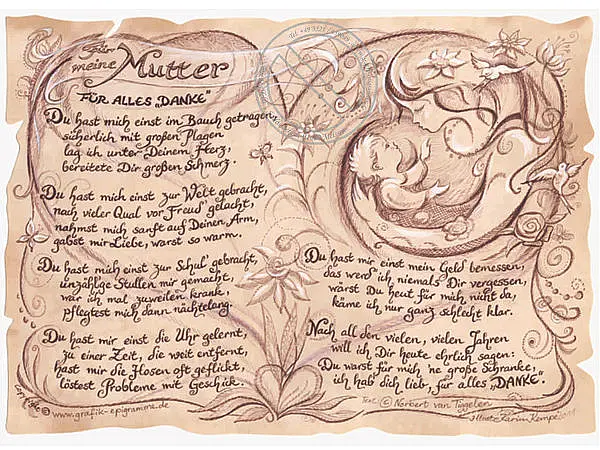 Für
meine Mutter
FÜR ALLES „DANKE"
Du hast mich einst im Bauch getragen,
sicherlich mit großen Plagen
lag ich unter Deinem Herz,
bereitete Dir großen Schmerz.
Du hast mich einst zur Welt gebracht,
nach vieler Qual vor Freud' gelacht,
nahmst mich sanft auf Deinen Arm,
gabst mir Liebe, warst so warm.
Du hast mich einst zur Schul' gebracht,
unzählge Stullen mir gemacht,
war ich mal zuweilen krank,
pflegtest mich dann nächtelang.
Du hast mir einst die Uhr gelernt,
zu einer Zeit, die weit entfernt,
hast mir die Hosen oft geflickt,
löstest Probleme mit Geschick.
Du hast mir einst mein Geld bemessen,
das werd' ich niemals Dir vergessen,
wärst Du heut' für mich nicht da,
käme ich nur ganz schlecht klar.
Nach all den vielen, vielen Jahren
will ich Dir heute ehrlich sagen:
Du warst für mich 'ne große Schranke,
ich hab' dich lieb, für alles „DANKE".
Copyright © www.grafik-epigramme.de
Text © Norbert van Tiggelen
Illustr. Karin Kempe